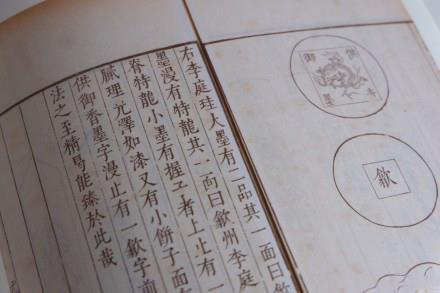 供御
香墨
歙
右李庭珪大墨有二品其一面曰歙
墨漫有特龍其一面曰歙州李庭
脊特龍小墨有握者上止有一
膩理光澤如漆又有小餅子面有
供御香墨字漫止有一歙字前
法之至精曷能臻於此哉